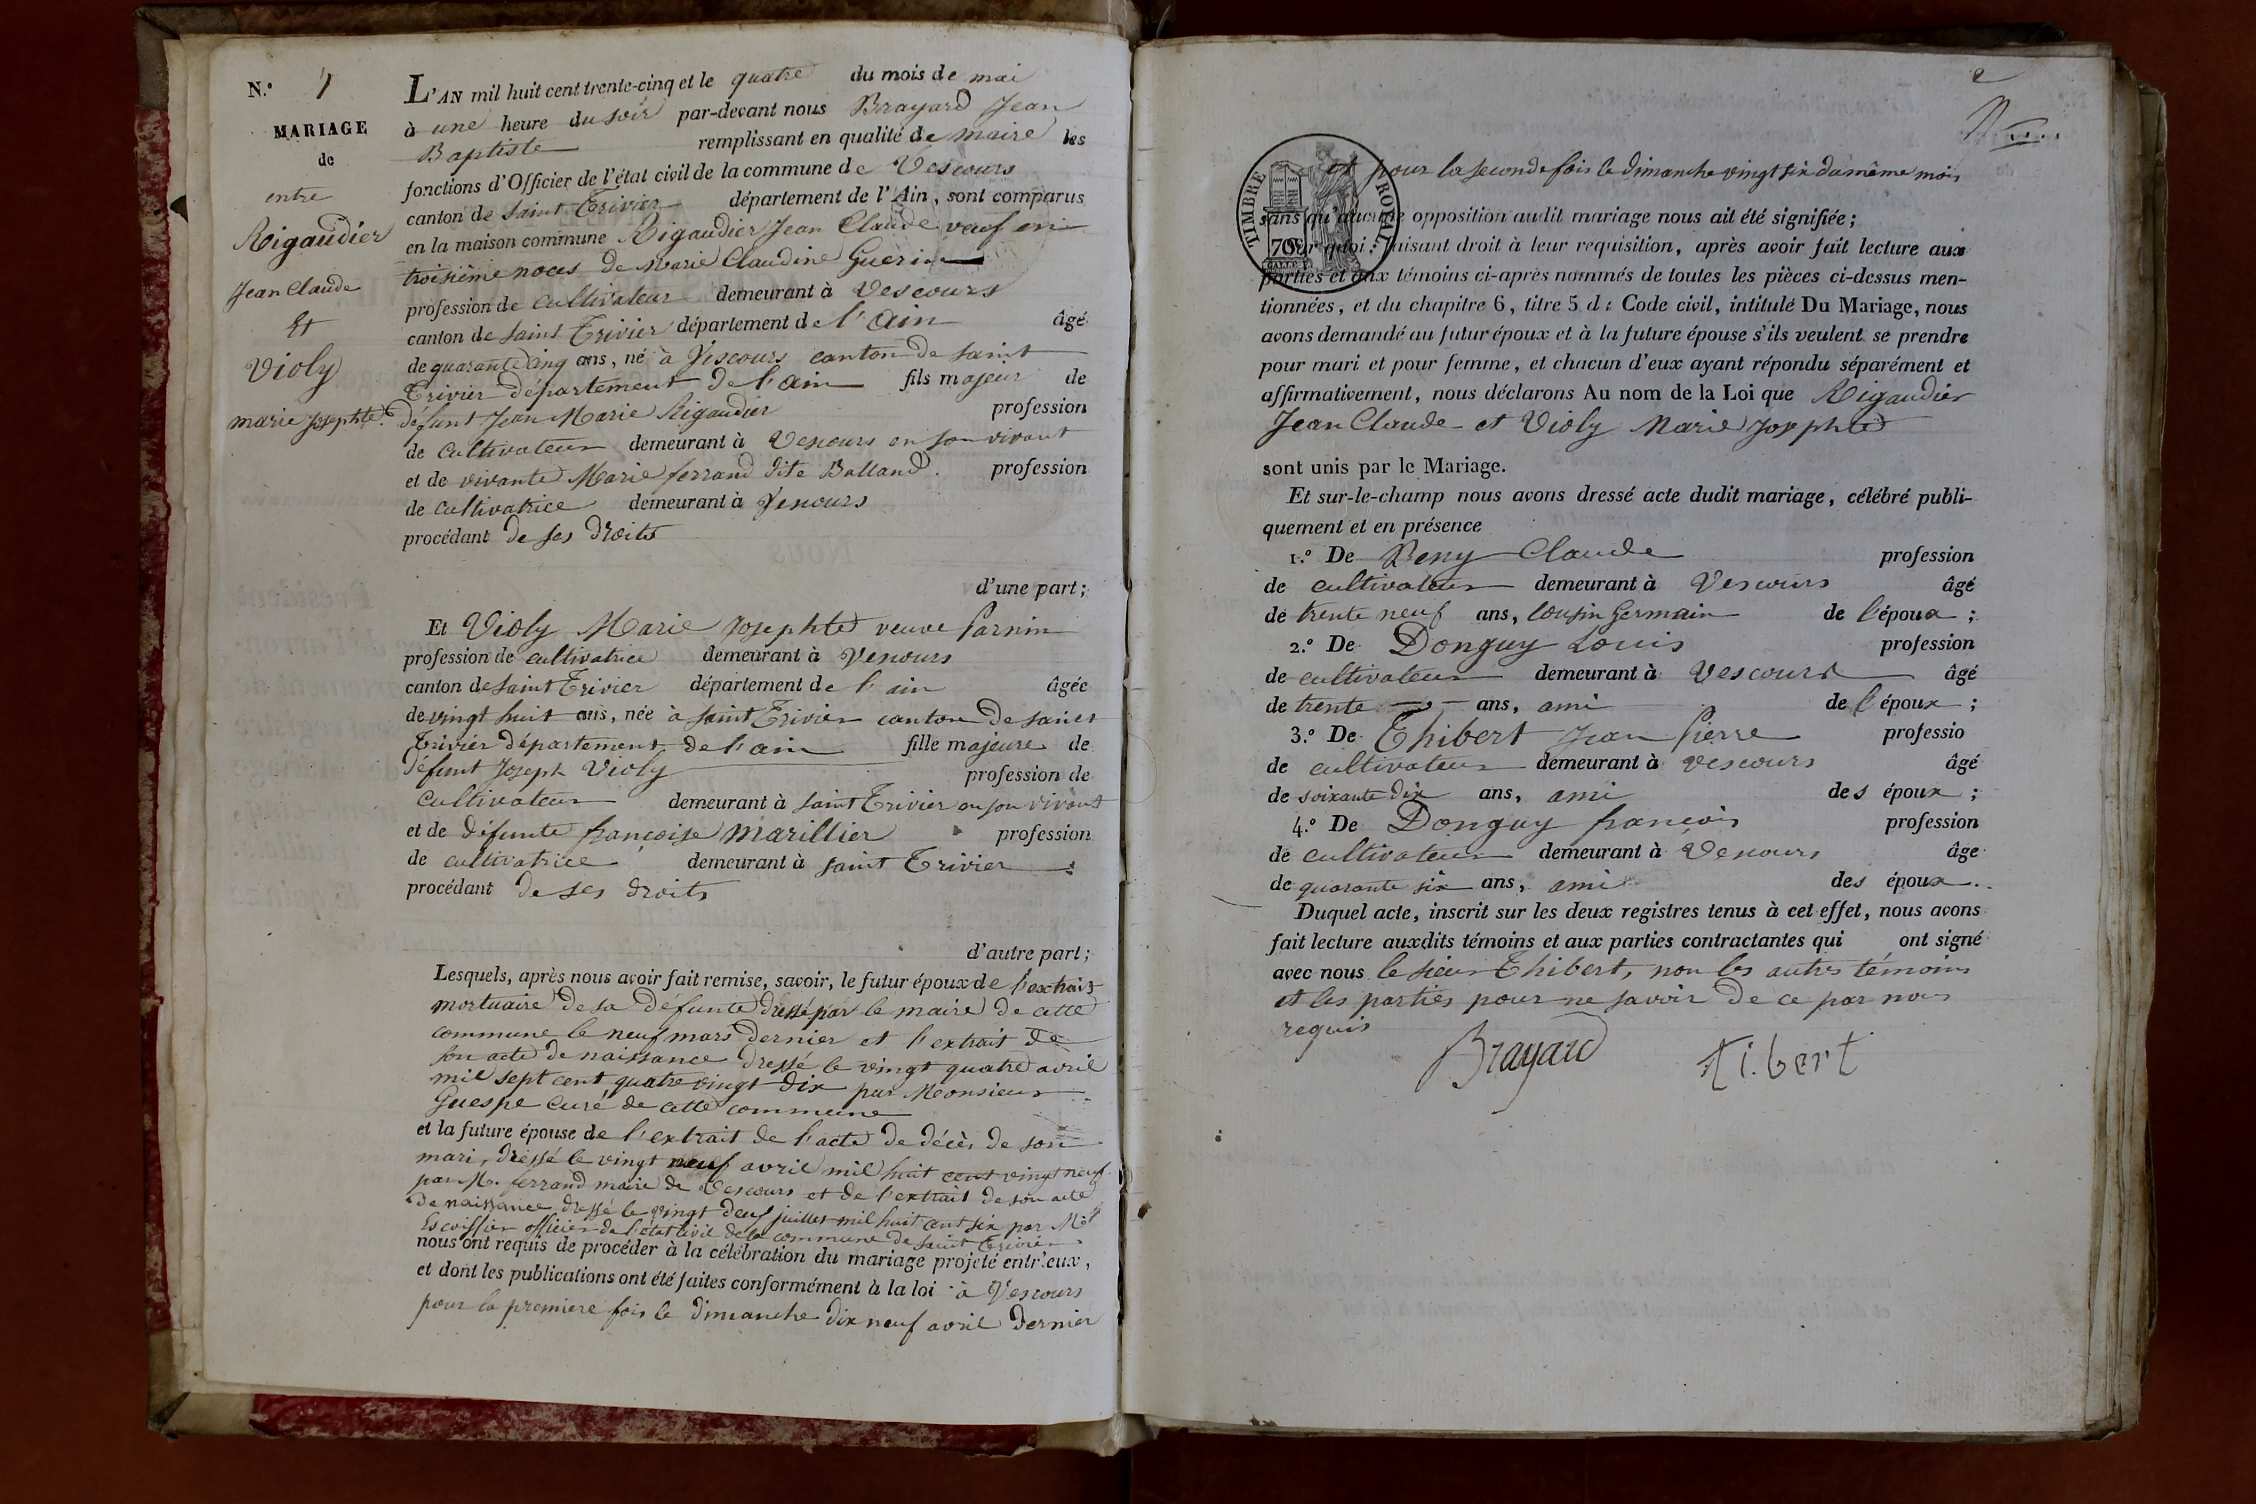 N.º 1
MARIAGE
de
entre
Rigaudier
Jean Claude
Et
Violy
marie Josephte.
L'AN mil huit cent trente-cinq et le quatre du mois de mai
à une heure du soir par-devant nous Brayard Jean
Baptiste remplissant en qualité de maire les
fonctions d'Officier de l'état civil de la commune de Vescours
canton de saint Trivier département de l'Ain, sont comparus
en la maison commune Rigaudier Jean Claude veuf en
troisième noces de marie Claudine Guerin
profession de cultivateur demeurant à Vescours
canton de saint Trivier département de l'ain âgé
de quarante cinq ans, né à Vescours canton de saint
Trivier département de l'ain fils majeur de
défunt Jean Marie Rigaudier profession
de cultivateur demeurant à Vescours en son vivant
et de vivante Marie ferrand dite Balland. profession
de cultivatrice demeurant à Vescours
procédant de ses droits
d'une part;
Et Violy Marie Josephte veuve Parnin
profession de cultivatrice demeurant à Vescours
canton de saint Trivier département de l'ain âgée
de vingt huit ans, née à saint Trivier canton de saint
Trivier département de l'ain fille majeure de
défunt Joseph Violy profession de
cultivateur demeurant à saint Trivier en son vivant
et de défunte françoise Marillier profession
de cultivatrice demeurant à saint Trivier
procédant de ses droits
d'autre part;
Lesquels, après nous avoir fait remise, savoir, le futur époux de l'extrait
mortuaire de sa défunte dressé par le maire de cette
commune le neuf mars dernier et l'extrait de
son acte de naissance dressé le vingt quatre avril
mil sept cent quatre vingt dix par Monsieur
Guespe curé de cette commune
et la future épouse de l'extrait de l'acte de décès de son
mari, dressé le vingt neuf avril mil huit cent vingt neuf
par M. ferrand maire de Vescours et de l'extrait de son acte
de naissance dressé le vingt deux juillet mil huit cent six par Mr
Escoiffier officier de l'état civil de la commune de saint Trivier
nous ont requis de procéder à la célébration du mariage projeté entr'eux,
et dont les publications ont été faites conformément à la loi à Vescours
pour la premiere fois le dimanche dix neuf avril dernier
2
TIMBRE ROYAL
70
et pour la seconde fois le dimanche vingt six du même mois
sans qu'aucune opposition audit mariage nous ait été signifiée;
Sur quoi, faisant droit à leur requisition, après avoir fait lecture aux
parties et aux témoins ci-après nommés de toutes les pièces ci-dessus men-
tionnées, et du chapitre 6, titre 5 du Code civil, intitulé Du Mariage, nous
avons demandé au futur époux et à la future épouse s'ils veulent se prendre
pour mari et pour femme, et chacun d'eux ayant répondu séparément et
affirmativement, nous déclarons Au nom de la Loi que Rigaudier
Jean Claude et Violy Marie Josephte
sont unis par le Mariage.
Et sur-le-champ nous avons dressé acte dudit mariage, célébré publi-
quement et en présence
1.º De Beny Claude profession
de cultivateur demeurant à Vescours âgé
de trente neuf ans, cousin Germain de l'époux;
2.º De Donguy Louis profession
de cultivateur demeurant à Vescours âgé
de trente ans, ami de l'époux;
3.º De Thibert Jean Pierre professio
de cultivateur demeurant à Vescours âgé
de soixante dix ans, ami des époux;
4.º De Donguy francois profession
de cultivateur demeurant à Vescours âge
de quarante six ans, ami des époux.
Duquel acte, inscrit sur les deux registres tenus à cet effet, nous avons
fait lecture auxdits témoins et aux parties contractantes qui ont signé
avec nous le sieur Thibert, non les autres témoins
et les parties pour ne savoir de ce par nous
requis
Brayard Tibert